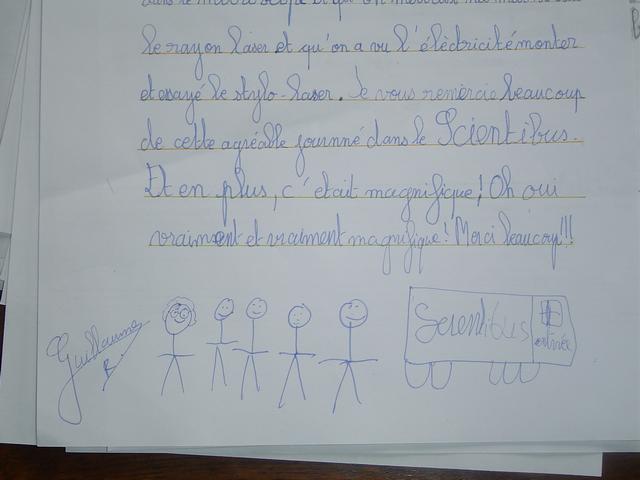 dans le microscope et qu'on
le rayon laser et qu'on a vu l'élèctricité monter
et essayé le stylo-laser. Je vous remèrcie beaucoup
de cette agréable journné dans le Scientibus.
Et en plus, c'était magnifique! Oh oui
vraiment et vraiment magnifique! Merci beaucoup!!!
Guillaume
B.
Scientibus
entrée